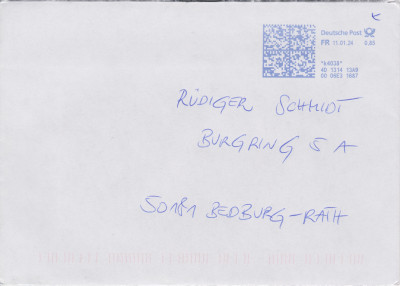 Deutsche Post
FR 11.01.24 0,85
*b4038*
4D 1314 1349
00 00E3 1087
RÜDIGER SCHMIDT
BURGRING 5 A
50181 BEDBURG-RATH